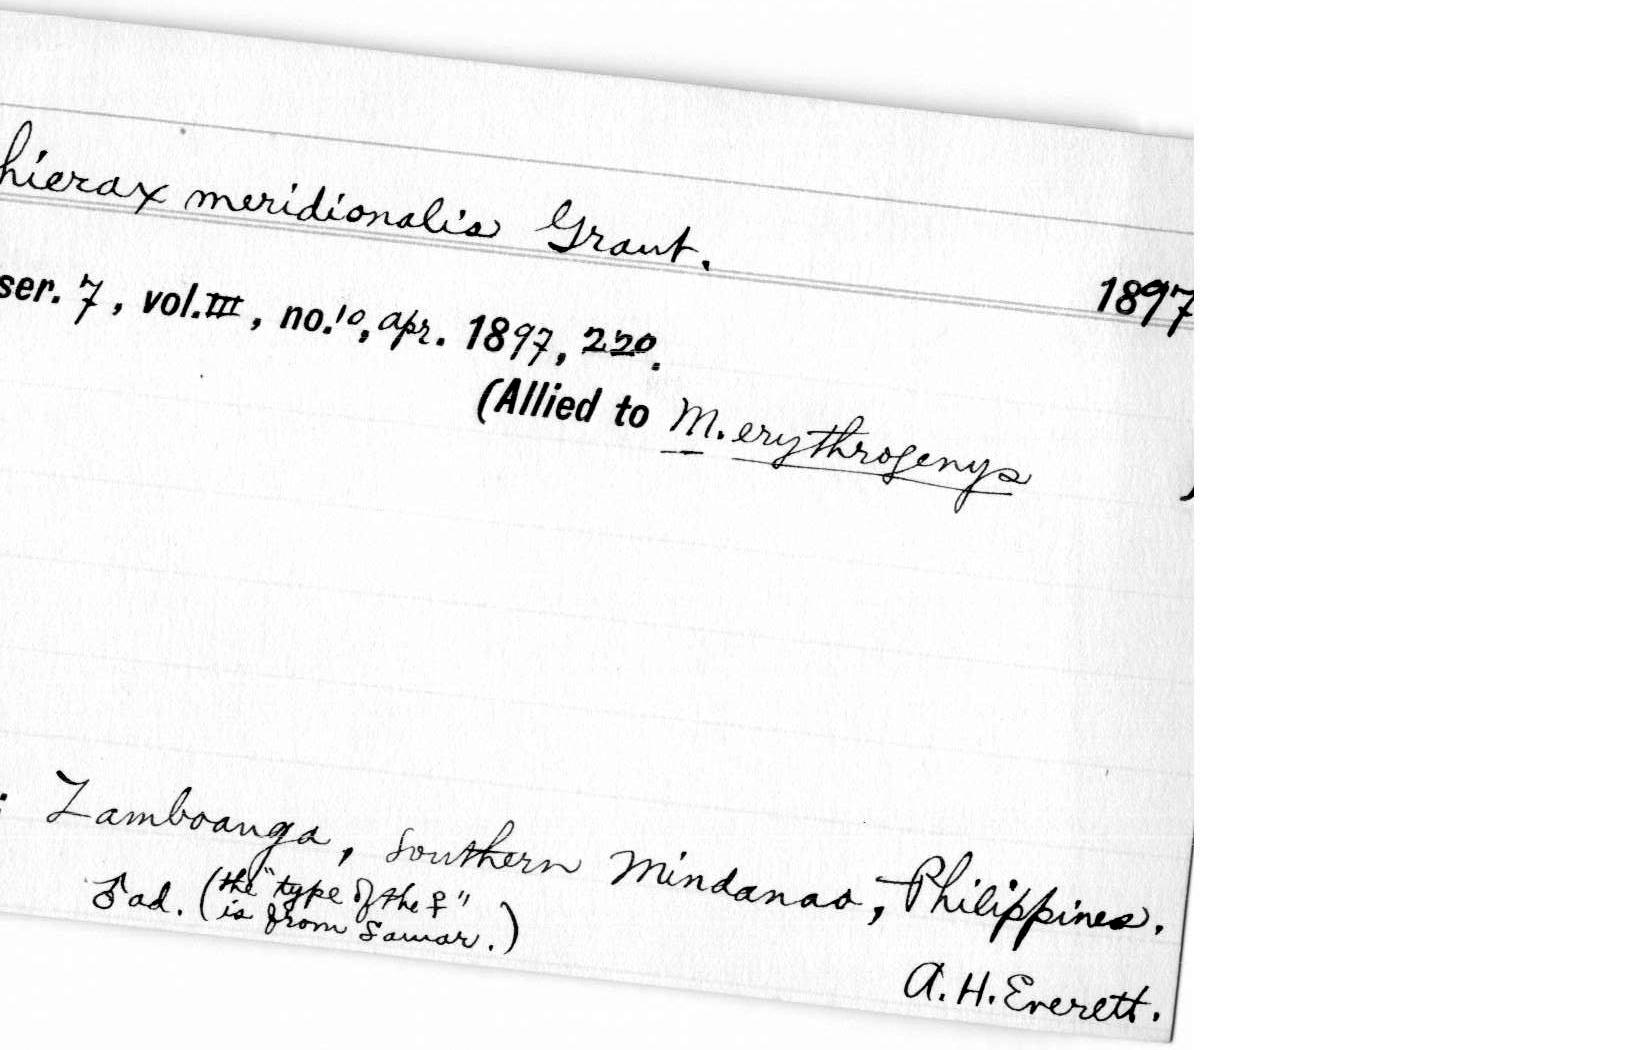 hierax meridionalis Grant.
1897
ser. 7, vol. III, no. 10, Apr. 1897, 220.
(Allied to M. erythrogenys )
: Zamboanga, Southern Mindanao, Philippines.
♂ ad. (the "type of the ♀"
is from Samar.)
A. H. Everett.